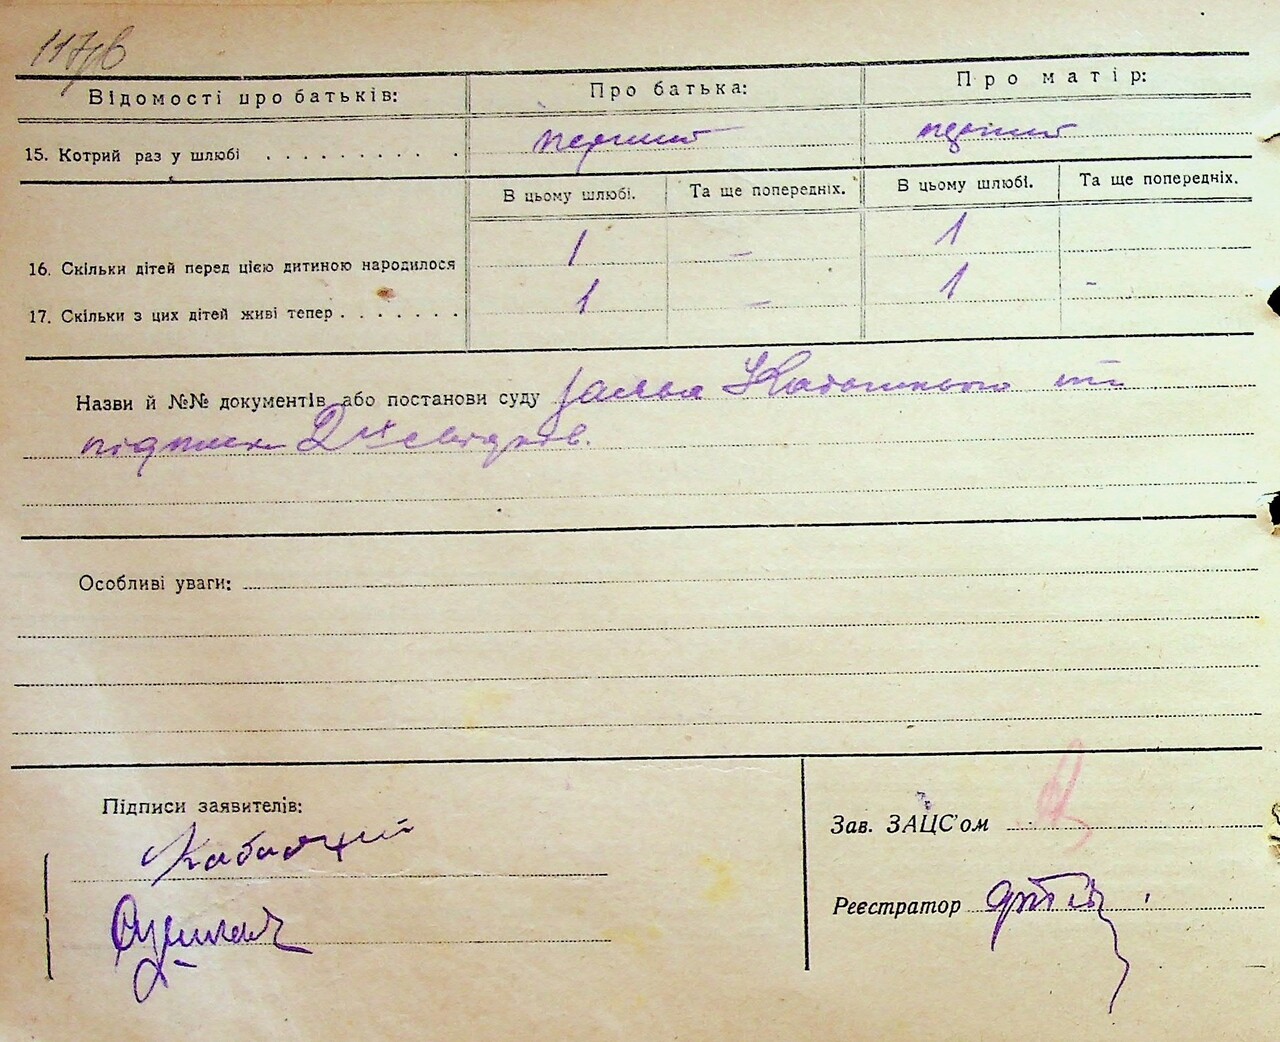 117/в
Відомості про батьків: Про батька: Про матір:
15. Котрий раз у шлюбі . . . . . . . . . . перший перший
В цьому шлюбі. Та ще попередніх. В цьому шлюбі. Та ще попередніх.
16. Скільки дітей перед цією дитиною народилося 1 – 1
17. Скільки з цих дітей живі тепер . . . . . . . 1 – 1 -
Назви й №№ документів або постанови суду заява та
підписи 2х свідків.
Особливі уваги:
Підписи заявителів:
Зав. ЗАЦС'ом
Реєстратор